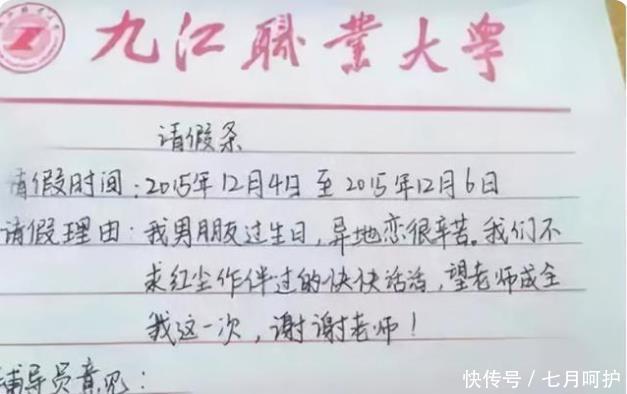 九江职业大学
请假条
请假时间：2015年12月4日至2015年12月6日
请假理由：我男朋友过生日，异地恋很辛苦。我们不
求红尘作伴过的快快活活，望老师成全
我这一次，谢谢老师！
辅导员意见：
快传号／七月呵护